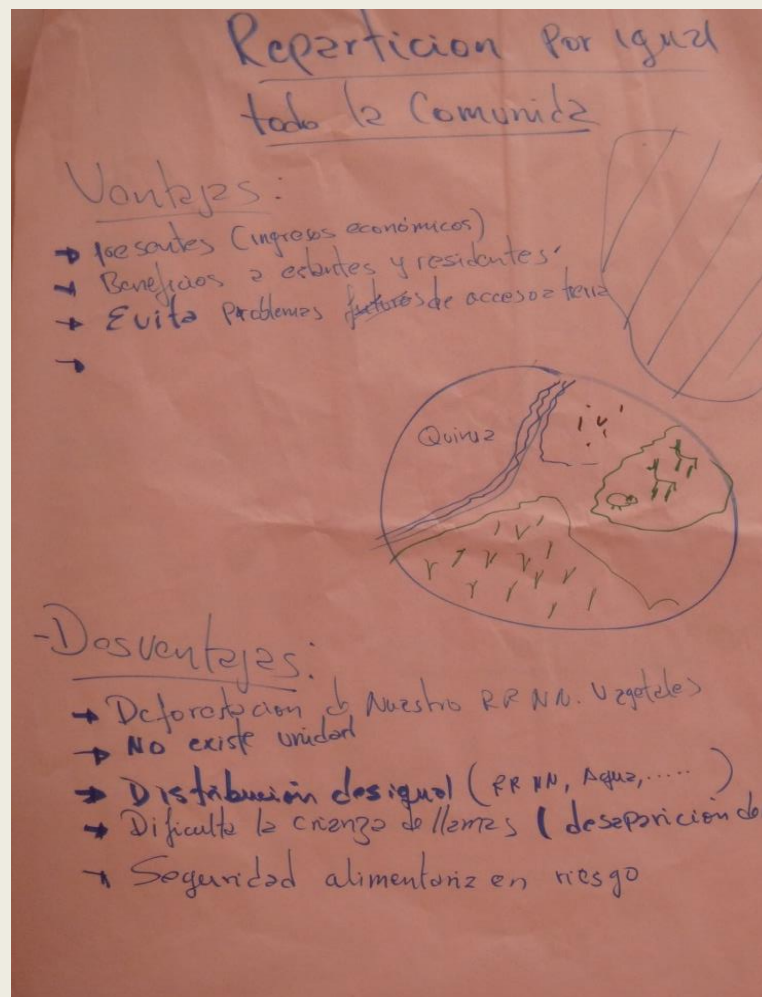 Reparticion Por igual
todo la Comunida
Ventajas:
Presentes (ingresos económicos)
Beneficios a estantes y residentes.
Evita Problemas futuros de acceso a tierra
Quinua
-Desventajas:
Deforestacion d Nuestro RR NN. Vegetales
No existe unidad
Distribución desigual (RR NN, Agua, .....)
Dificulta la crianza de llamas (desaparición de
Seguridad alimentaria en riesgo